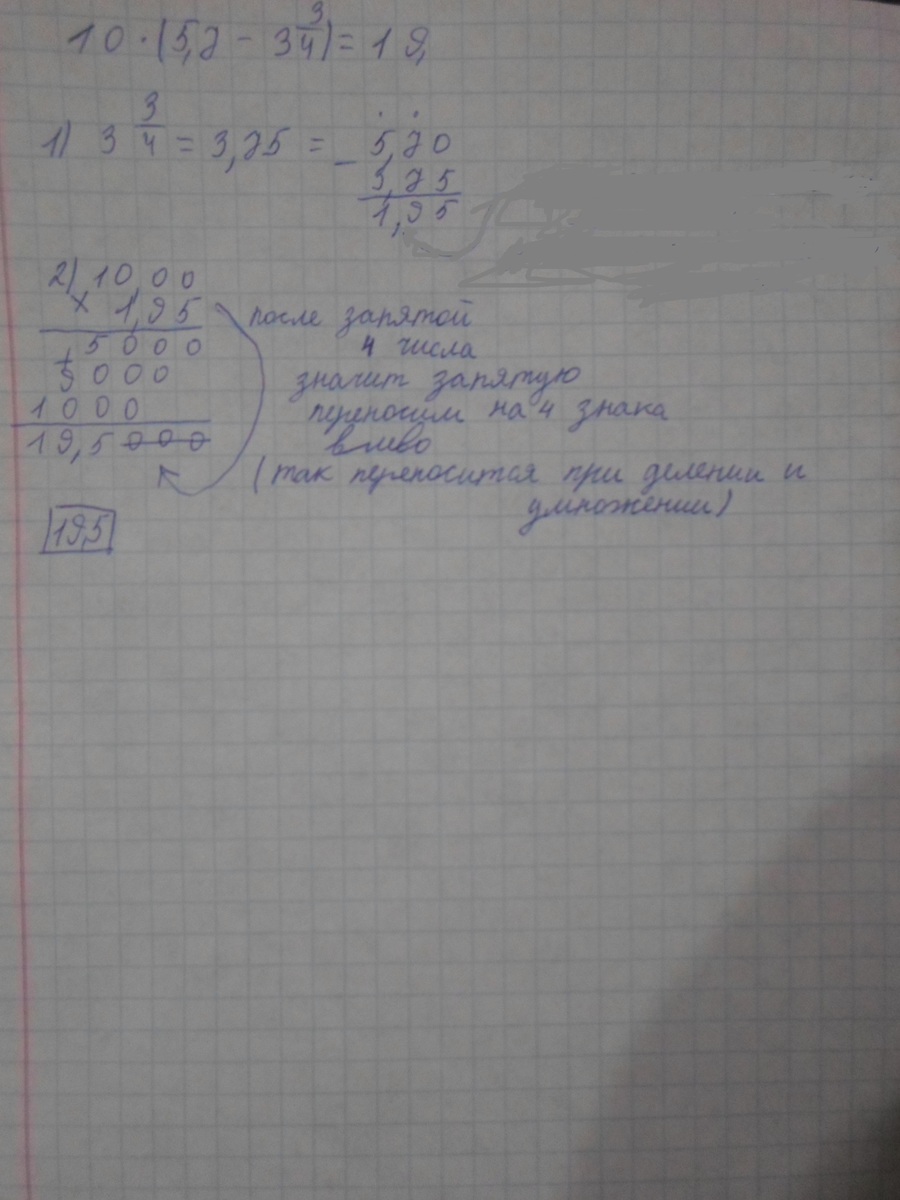 10 · (5,7 - 3 3/4) = 19,
1) 3 3/4 = 3,75 = - 5,70
3,75
1,95
2) 10,00
× 1,95
+ 5000
9000
1000
19,5000
после запятой
4 числа
значит запятую
переносим на 4 знака
влево
(так переносится при делении и
умножении)
19,5